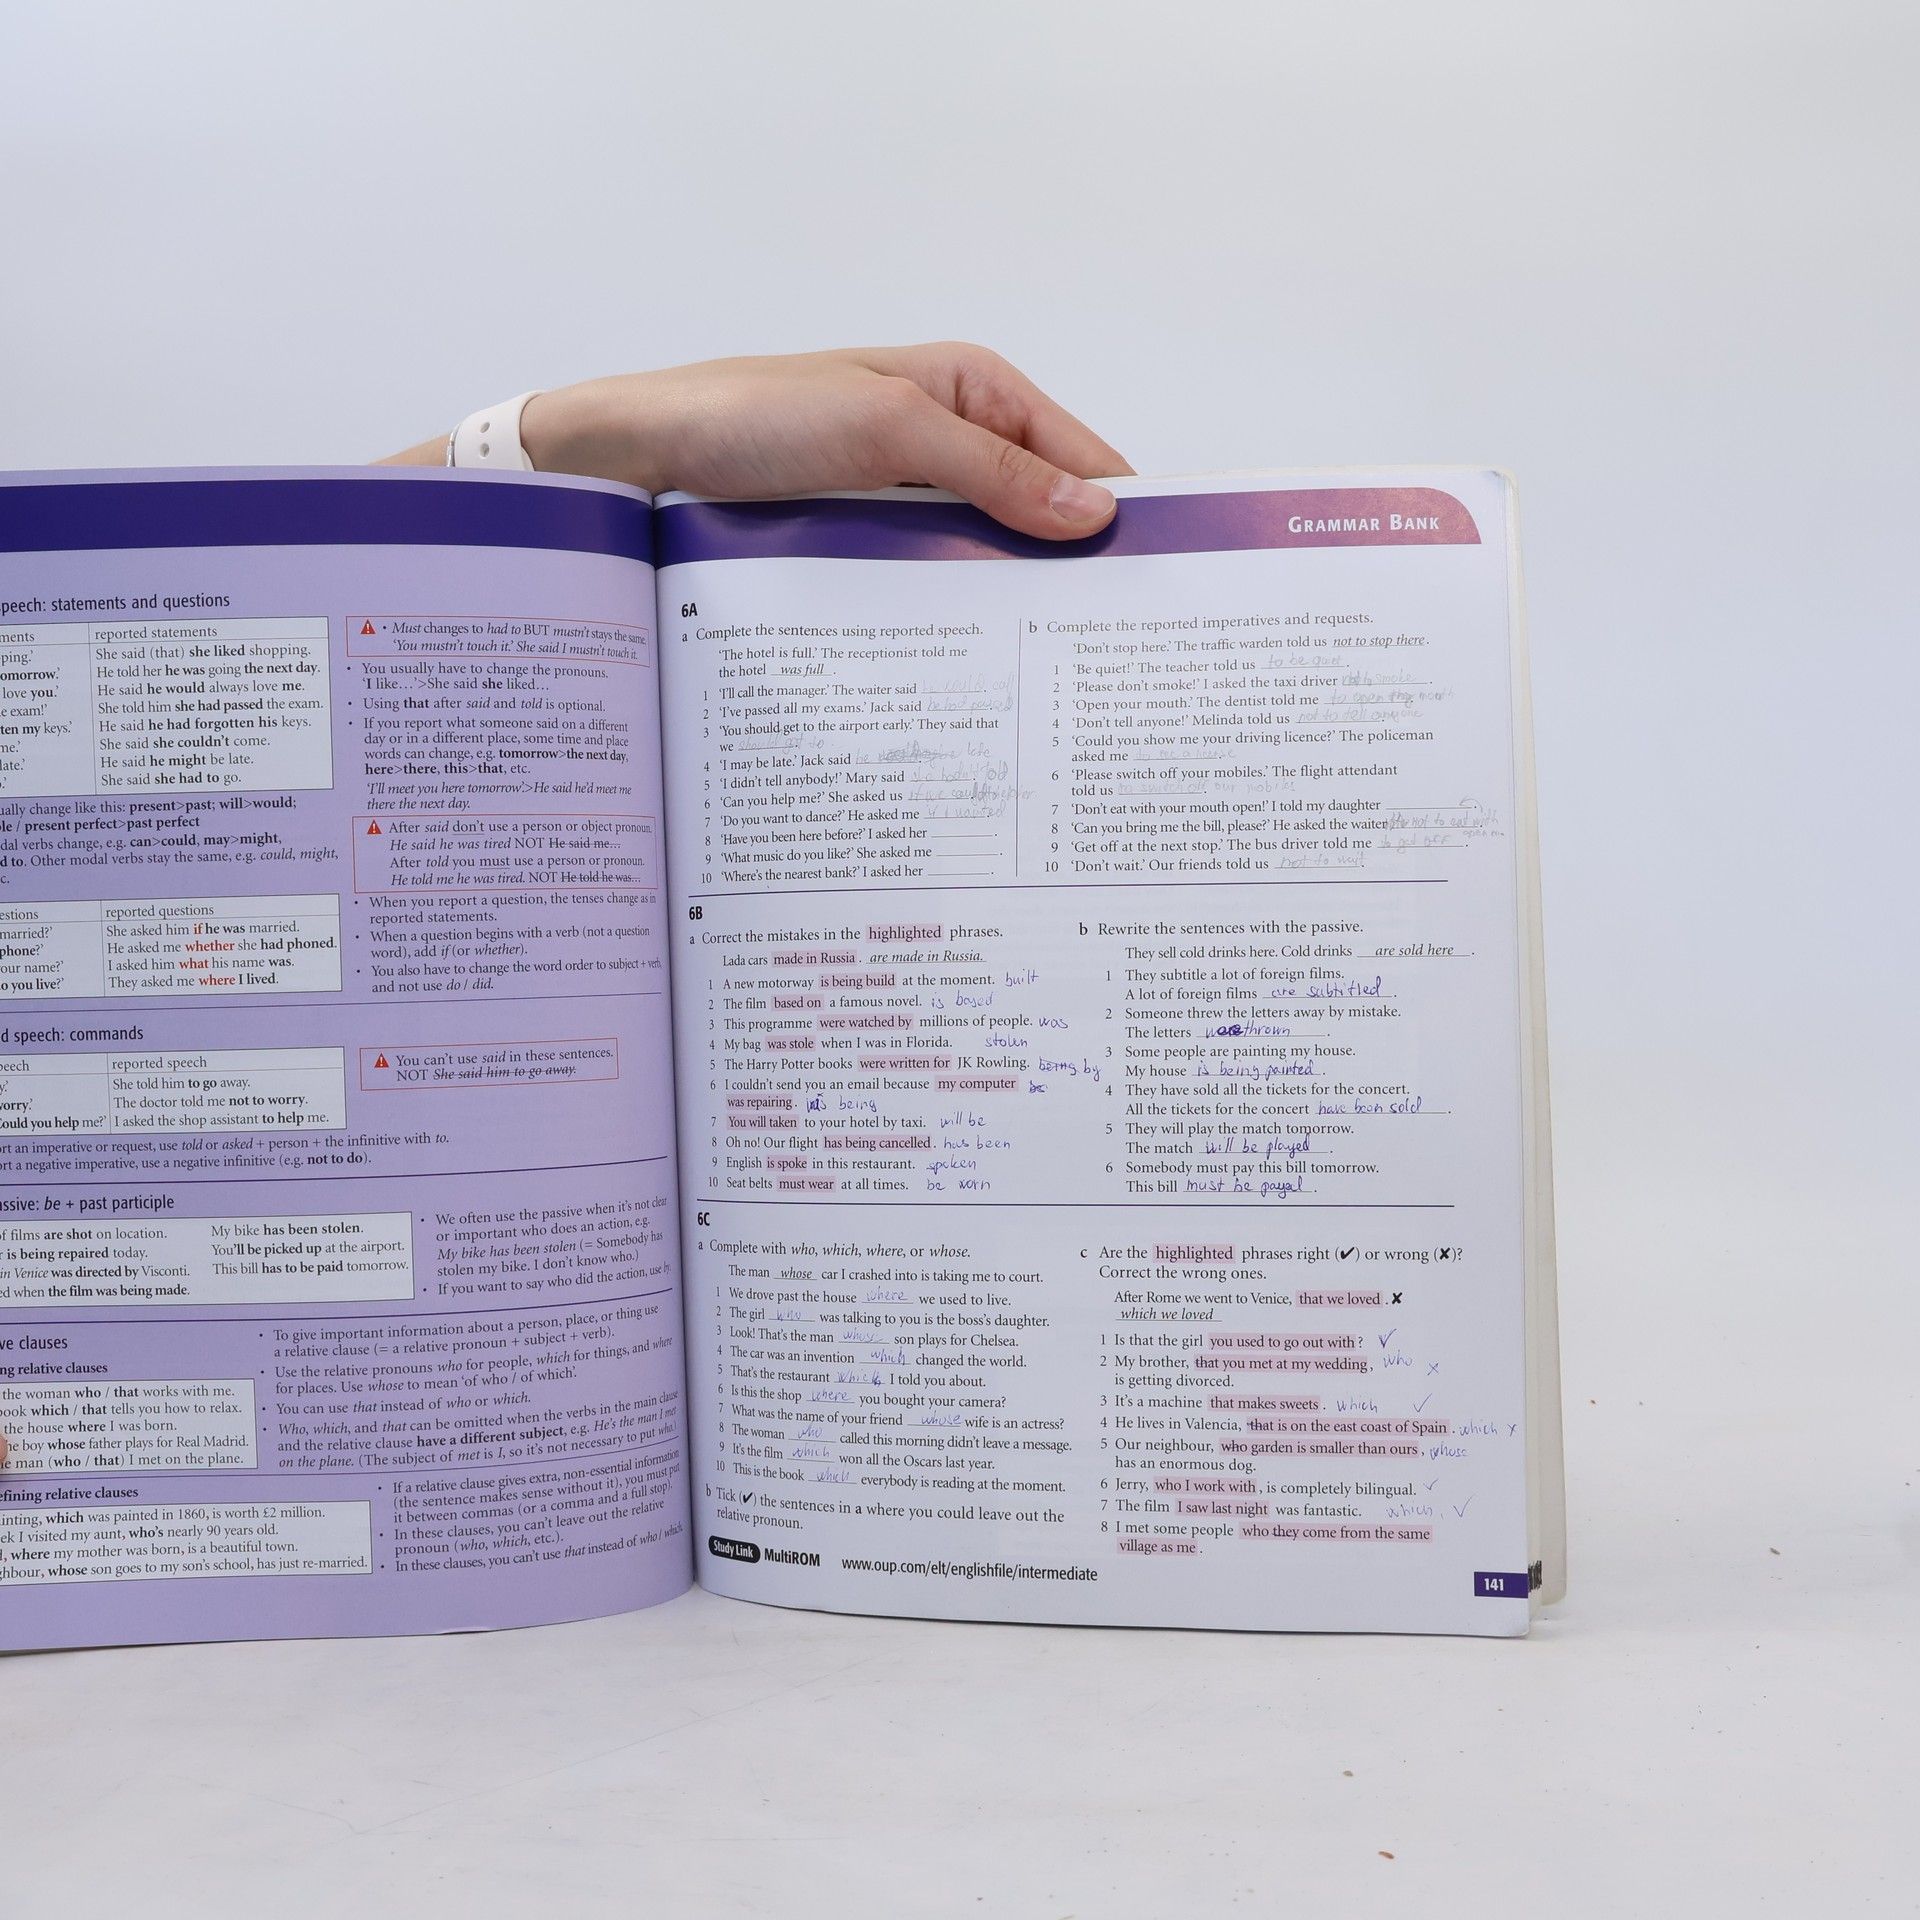 speech: statements and questions
ments reported statements
ping.' She said (that) she liked shopping.
omorrow.' He told her he was going the next day.
love you.' He said he would always love me.
e exam!' She told him she had passed the exam.
ten my keys.' He said he had forgotten his keys.
me.' She said she couldn't come.
late.' He said he might be late.
She said she had to go.
ually change like this: present>past; will>would;
ple / present perfect>past perfect
dal verbs change, e.g. can>could, may>might,
d to. Other modal verbs stay the same, e.g. could, might,
c.
• Must changes to had to BUT mustn't stays the same.
'You mustn't touch it.' She said I mustn't touch it.
• You usually have to change the pronouns.
'I like…'>She said she liked…
• Using that after said and told is optional.
• If you report what someone said on a different
day or in a different place, some time and place
words can change, e.g. tomorrow>the next day,
here>there, this>that, etc.
'I'll meet you here tomorrow'.>He said he'd meet me
there the next day.
After said don't use a person or object pronoun.
He said he was tired NOT He said me…
After told you must use a person or pronoun.
He told me he was tired. NOT He told he was…
estions reported questions
married?' She asked him if he was married.
phone?' He asked me whether she had phoned.
our name?' I asked him what his name was.
o you live?' They asked me where I lived.
• When you report a question, the tenses change as in
reported statements.
• When a question begins with a verb (not a question
word), add if (or whether).
• You also have to change the word order to subject + verb,
and not use do / did.
d speech: commands
peech reported speech
y.' She told him to go away.
vorry.' The doctor told me not to worry.
Could you help me?' I asked the shop assistant to help me.
You can't use said in these sentences.
NOT She said him to go away.
ort an imperative or request, use told or asked + person + the infinitive with to.
ort a negative imperative, use a negative infinitive (e.g. not to do).
assive: be + past participle
of films are shot on location. My bike has been stolen.
r is being repaired today. You'll be picked up at the airport.
in Venice was directed by Visconti. This bill has to be paid tomorrow.
ed when the film was being made.
• We often use the passive when it's not clear
or important who does an action, e.g.
My bike has been stolen (= Somebody has
stolen my bike. I don't know who.)
• If you want to say who did the action, use by.
ve clauses
ng relative clauses
the woman who / that works with me.
book which / that tells you how to relax.
the house where I was born.
he boy whose father plays for Real Madrid.
e man (who / that) I met on the plane.
• To give important information about a person, place, or thing use
a relative clause (= a relative pronoun + subject + verb).
• Use the relative pronouns who for people, which for things, and where
for places. Use whose to mean 'of who / of which'.
• You can use that instead of who or which.
• Who, which, and that can be omitted when the verbs in the main clause
and the relative clause have a different subject, e.g. He's the man I met
on the plane. (The subject of met is I, so it's not necessary to put who.)
efining relative clauses
inting, which was painted in 1860, is worth £2 million.
ek I visited my aunt, who's nearly 90 years old.
d, where my mother was born, is a beautiful town.
ghbour, whose son goes to my son's school, has just re-married.
• If a relative clause gives extra, non-essential information
(the sentence makes sense without it), you must put
it between commas (or a comma and a full stop).
• In these clauses, you can't leave out the relative
pronoun (who, which, etc.).
• In these clauses, you can't use that instead of who / which.
GRAMMAR BANK
6A
a Complete the sentences using reported speech.
'The hotel is full.' The receptionist told me
the hotel was full.
1 'I'll call the manager.' The waiter said he would call
2 'I've passed all my exams.' Jack said he had passed
3 'You should get to the airport early.' They said that
we should get to
4 'I may be late.' Jack said he
5 'I didn't tell anybody!' Mary said she hadn't told
6 'Can you help me?' She asked us if we could
7 'Do you want to dance?' He asked me if I wanted
8 'Have you been here before?' I asked her ________.
9 'What music do you like?' She asked me ________.
10 'Where's the nearest bank?' I asked her ________.
b Complete the reported imperatives and requests.
'Don't stop here.' The traffic warden told us not to stop there.
1 'Be quiet!' The teacher told us to be quiet.
2 'Please don't smoke!' I asked the taxi driver not to smoke.
3 'Open your mouth.' The dentist told me to open my mouth
4 'Don't tell anyone!' Melinda told us not to tell anyone
5 'Could you show me your driving licence?' The policeman
asked me to
6 'Please switch off your mobiles.' The flight attendant
told us to switch off our mobiles
7 'Don't eat with your mouth open!' I told my daughter ________.
8 'Can you bring me the bill, please?' He asked the waiter not to eat with
9 'Get off at the next stop.' The bus driver told me to get off.
10 'Don't wait.' Our friends told us not to wait.
6B
a Correct the mistakes in the highlighted phrases.
Lada cars made in Russia. are made in Russia.
1 A new motorway is being build at the moment. built
2 The film based on a famous novel. is based
3 This programme were watched by millions of people. was
4 My bag was stole when I was in Florida. stolen
5 The Harry Potter books were written for JK Rowling. being by
6 I couldn't send you an email because my computer be
was repairing. was being
7 You will taken to your hotel by taxi. will be
8 Oh no! Our flight has being cancelled. has been
9 English is spoke in this restaurant. spoken
10 Seat belts must wear at all times. be worn
b Rewrite the sentences with the passive.
They sell cold drinks here. Cold drinks are sold here.
1 They subtitle a lot of foreign films.
A lot of foreign films are subtitled.
2 Someone threw the letters away by mistake.
The letters were thrown.
3 Some people are painting my house.
My house is being painted.
4 They have sold all the tickets for the concert.
All the tickets for the concert have been sold.
5 They will play the match tomorrow.
The match will be played.
6 Somebody must pay this bill tomorrow.
This bill must be payed.
6C
a Complete with who, which, where, or whose.
The man whose car I crashed into is taking me to court.
1 We drove past the house where we used to live.
2 The girl who was talking to you is the boss's daughter.
3 Look! That's the man whose son plays for Chelsea.
4 The car was an invention which changed the world.
5 That's the restaurant which I told you about.
6 Is this the shop where you bought your camera?
7 What was the name of your friend whose wife is an actress?
8 The woman who called this morning didn't leave a message.
9 It's the film which won all the Oscars last year.
10 This is the book which everybody is reading at the moment.
b Tick (✔) the sentences in a where you could leave out the
relative pronoun.
c Are the highlighted phrases right (✔) or wrong (✘)?
Correct the wrong ones.
After Rome we went to Venice, that we loved. ✘
which we loved
1 Is that the girl you used to go out with? ✓
2 My brother, that you met at my wedding, who x
is getting divorced.
3 It's a machine that makes sweets. which ✓
4 He lives in Valencia, that is on the east coast of Spain. which x
5 Our neighbour, who garden is smaller than ours, whose
has an enormous dog.
6 Jerry, who I work with, is completely bilingual. ✓
7 The film I saw last night was fantastic. which, ✓
8 I met some people who they come from the same
village as me.
Study Link MultiROM www.oup.com/elt/englishfile/intermediate
141